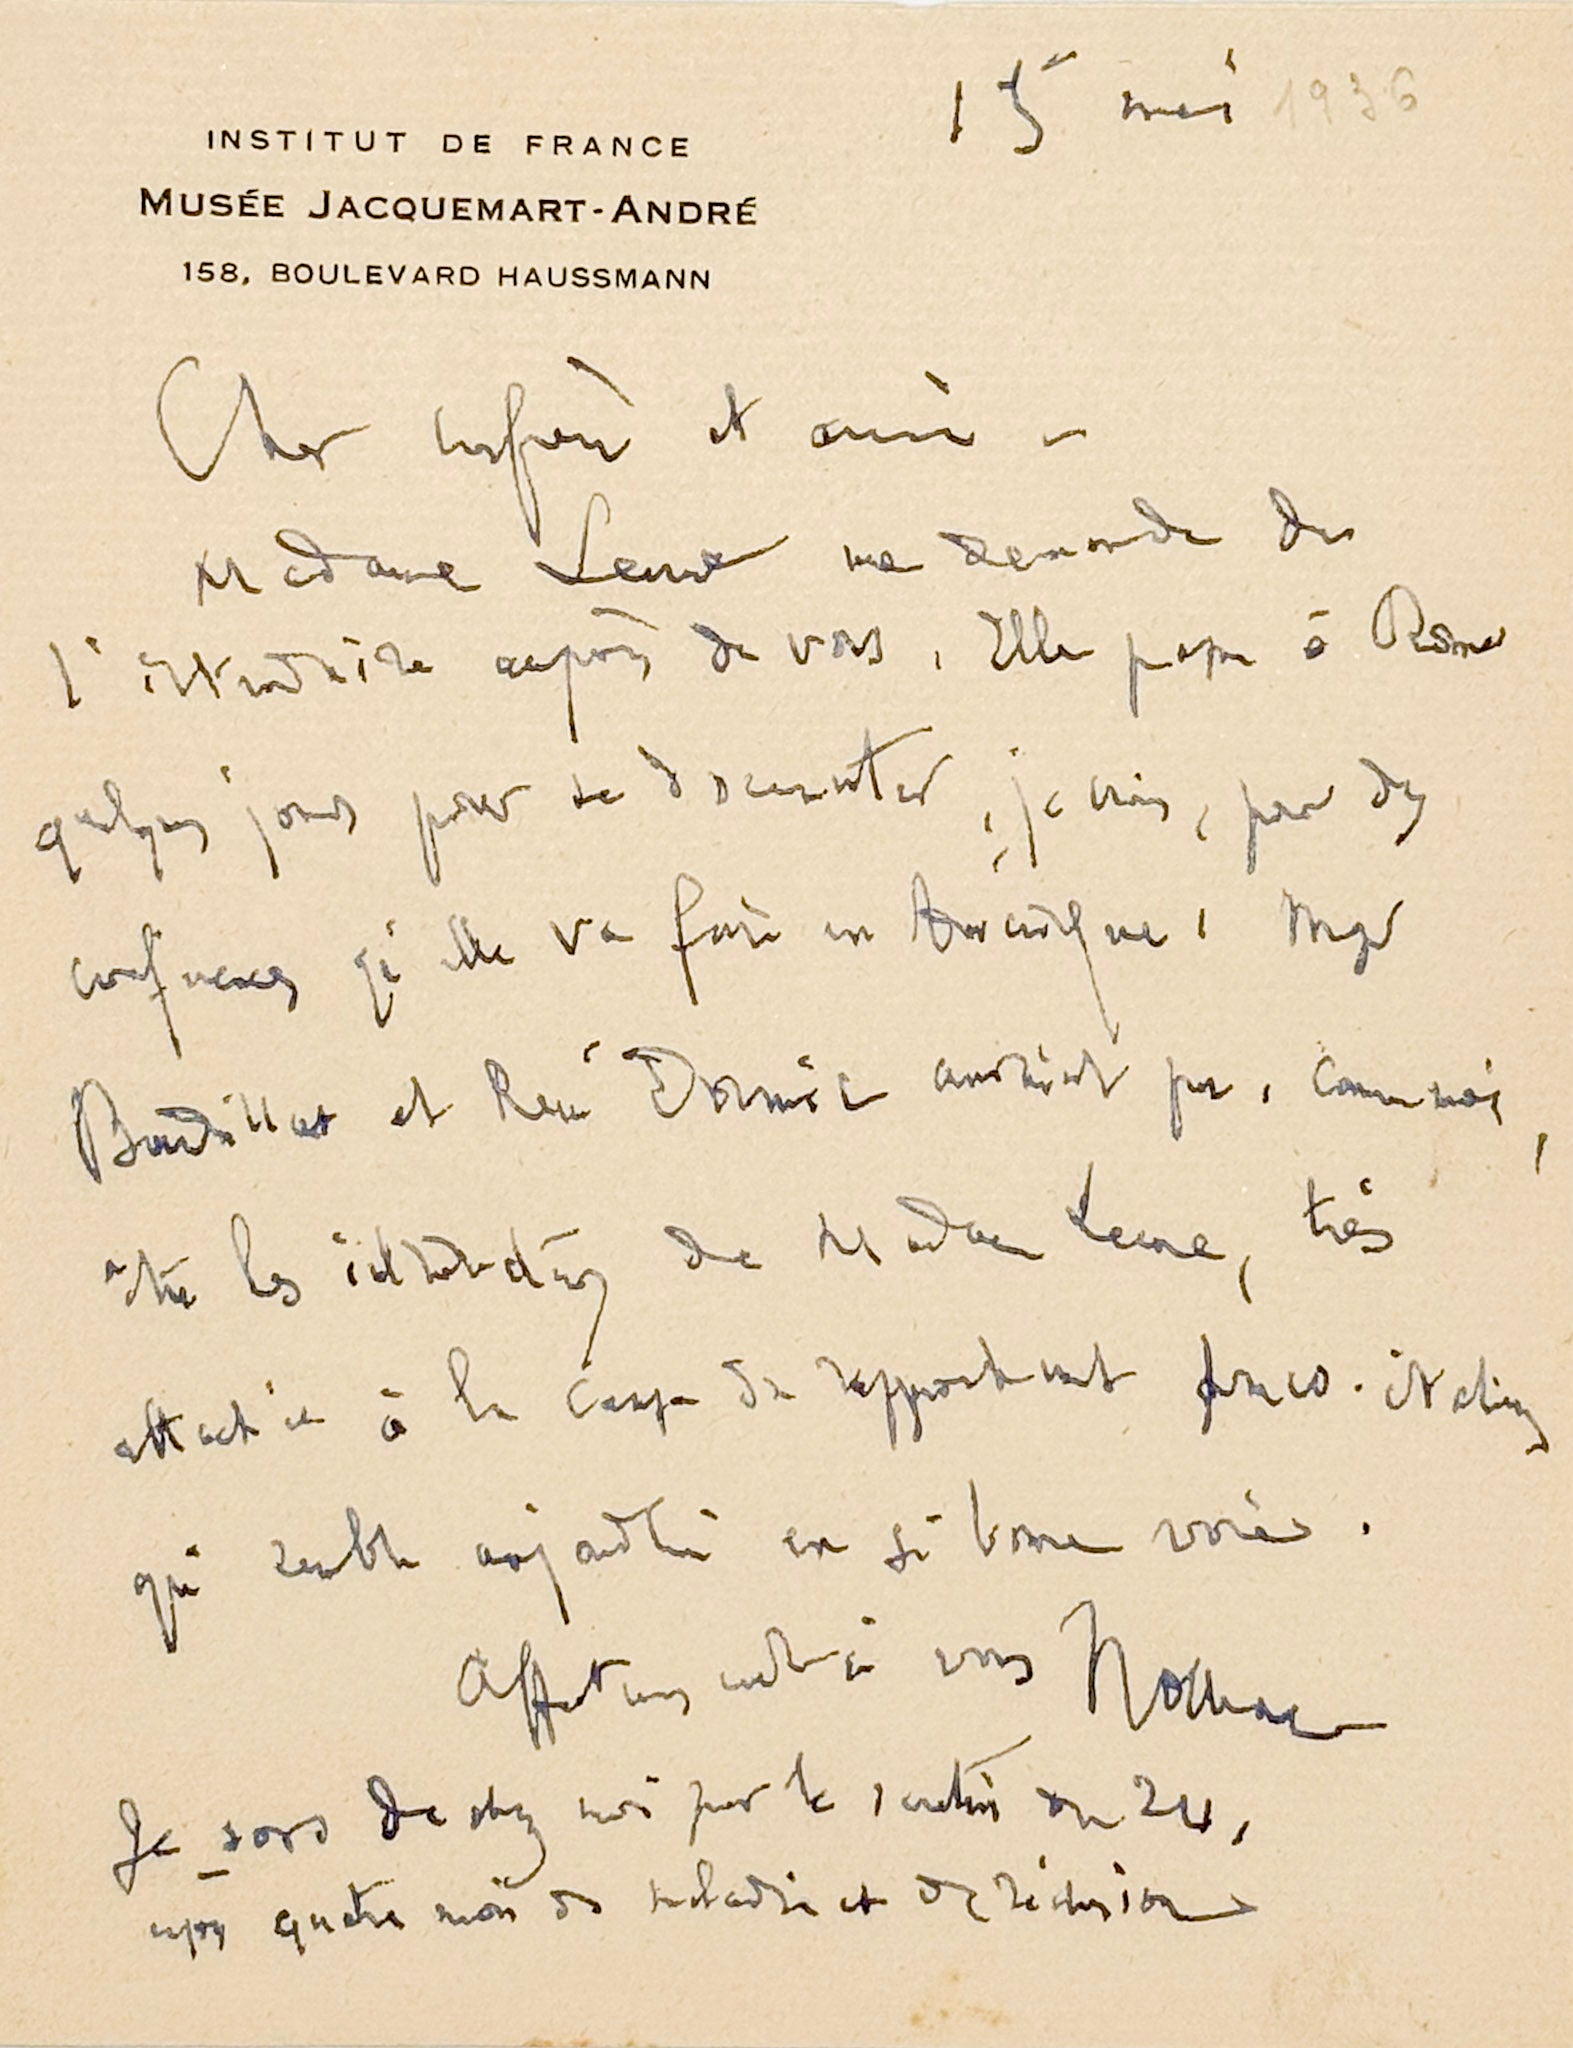 15 mai 1936
INSTITUT DE FRANCE
MUSÉE JACQUEMART-ANDRÉ
158, BOULEVARD HAUSSMANN
Cher confrère et ami –
Madame me demande de
l'introduire auprès de vous. Elle passe à Rome
quelques jours pour se documenter, je crois, pour des
conférences qu'elle va faire en Amérique. Mgr
Baudrillart et René Doumic auraient pu, comme moi,
être les introducteurs de Madame, très
attachée à la cause du rapprochement franco-italien
qui semble aujourd'hui en si bonne voie.
Affectueusement à vous Nolhac
Je sors de chez moi pour le scrutin du 28,
après quatre mois de maladie et de réclusion